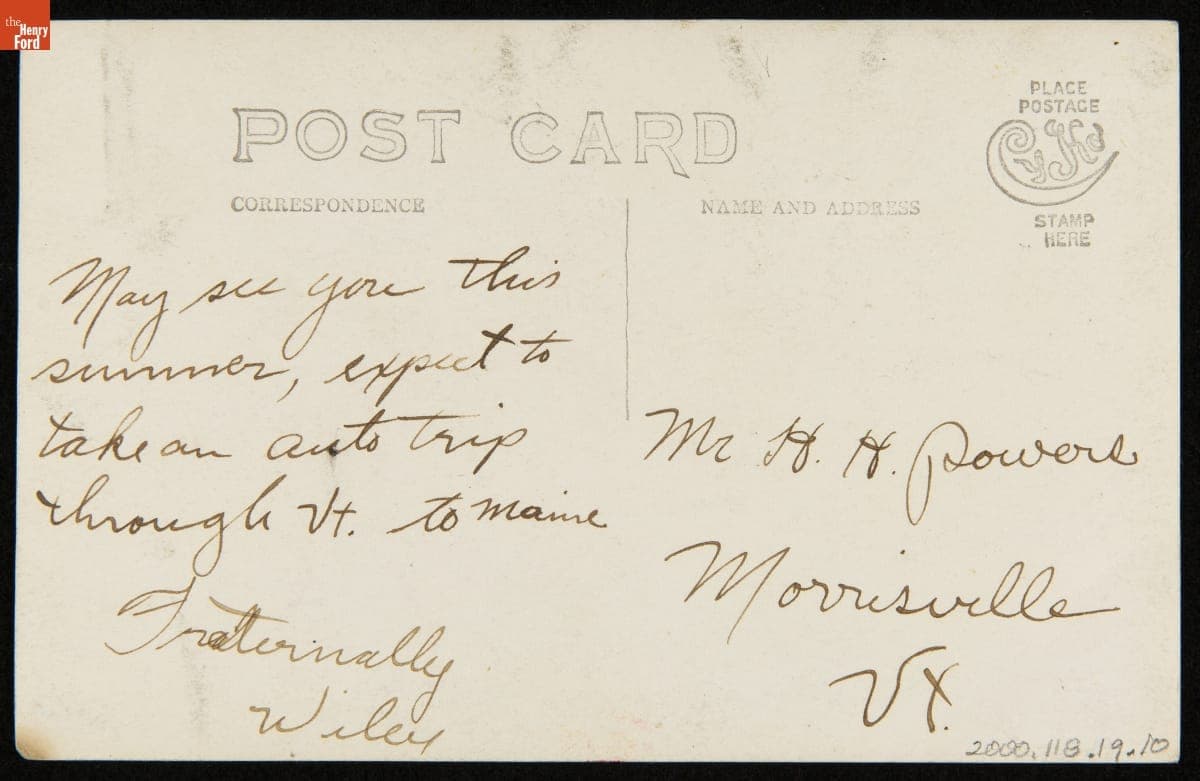 the
Henry
Ford
POST CARD
CORRESPONDENCE
NAME AND ADDRESS
PLACE
POSTAGE
STAMP
HERE
May see you this
summer, expect to
take an auto trip
through Vt. to Maine
Fraternally
Wiley
Mr H. H. Powers
Morrisville
Vt.
2000.118.19.10